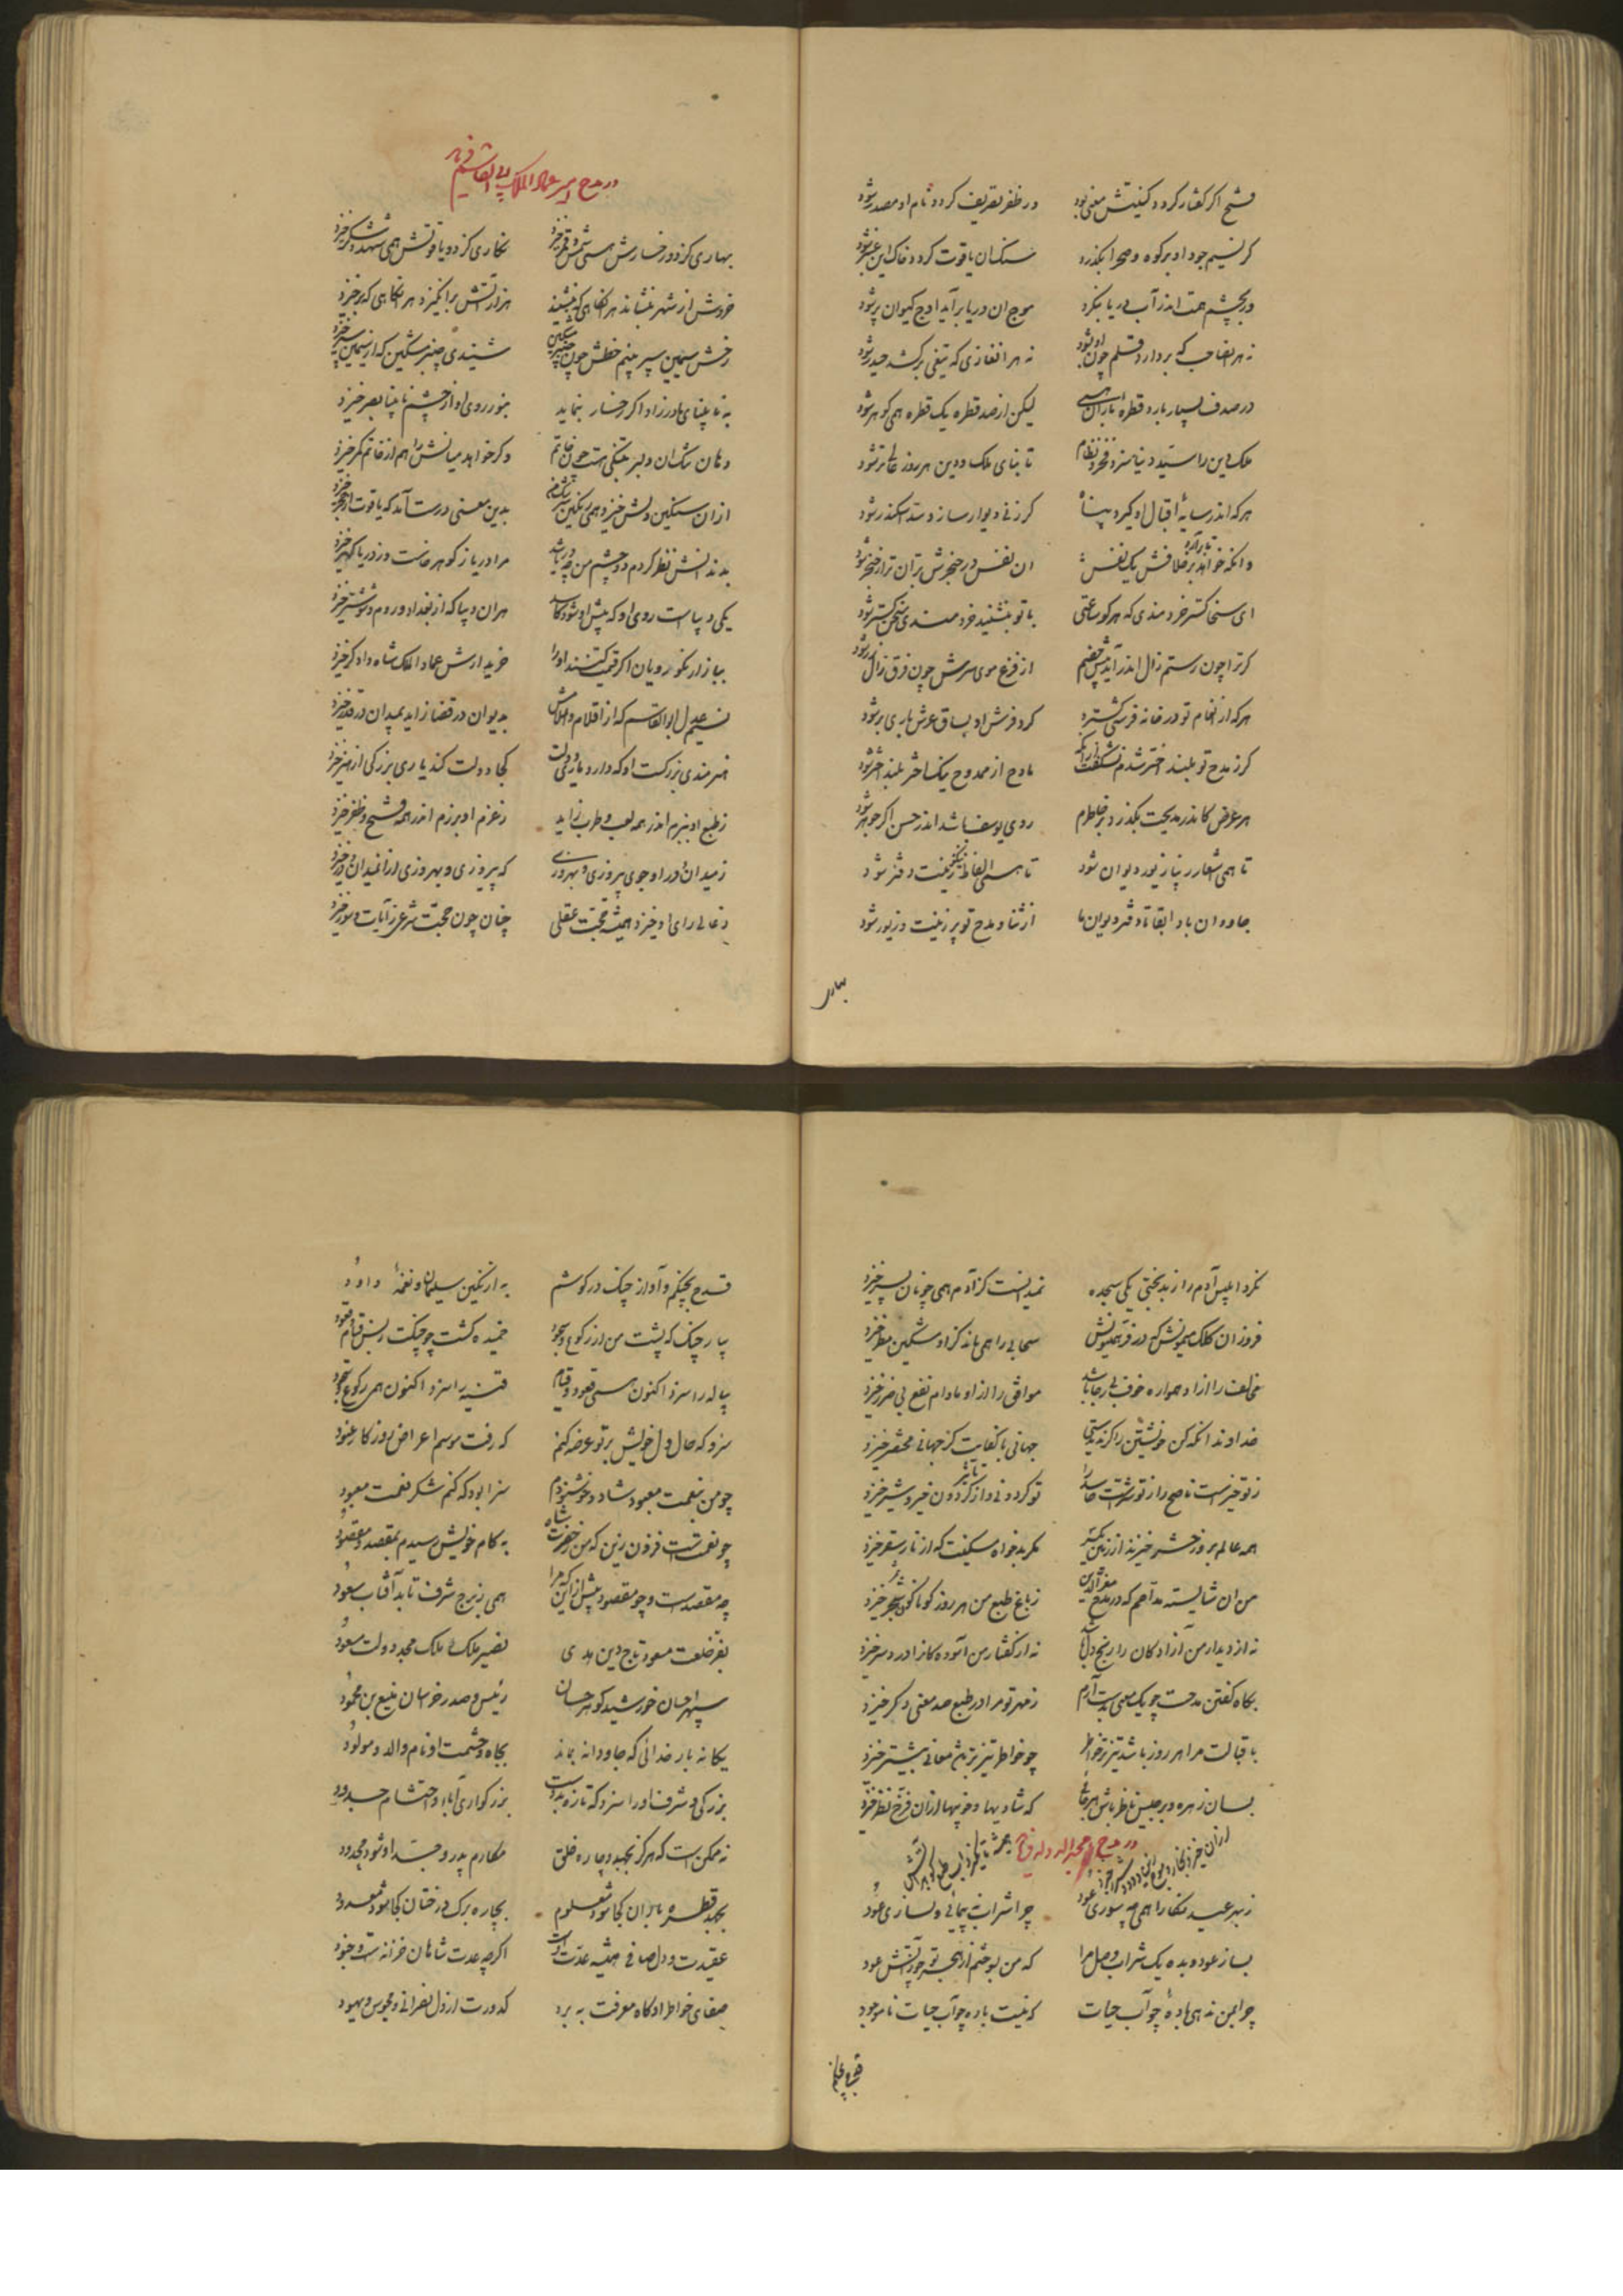 فتح اگر گفتار گردد کنیتش معنی بود در ظفر تصریف گردد نام او مصدر شود
گر نسیم جود او بر کوه و صحرا بگذرد سنگ آن یاقوت گردد خاک این عنبر شود
ور بچشم همت اندر آب دریا بنگرد موج آن دریا برآید اوج کیوان بر شود
نه هر انصاحب که بردارد قلم چون او شود نه هر انغازی که تیغی برکشد حیدر شود
در صدف بسیار بارد قطره باران همی لیکن از صد قطره یک قطره همی گوهر شود
ملک دین را سید دنیا سزد فخر و نظام تا بنای ملک و دین هر روز عالی تر شود
هر که اندر سایه اقبال او گیرد پناه گر زنی دیوار سازد سد اسکندر شود
وانکه خواهد بر خلافش تا برآرد یک نفس ان نفس در حنجرش بران تر از خنجر شود
ای سخن گستر خردمندی که هر کو ساعتی با تو بنشیند خردمندی سخن گستر شود
گر ترا چون رستم زال اندر آید پیش خصم از فزع موی سرش چون فرق زال زر شود
هر که از انعام تو در خانه فرشی گسترد گرد فرش او بساق عرش باری بر شود
گر ز مدح تو بلند اختر شدم نشگفت ازانکه مادح از ممدوح نیک اختر بلند اختر شود
هر عرض کاندر مدیحت بگذرد بر خاطرم روی یوسف باشد اندر حسن اگر جوهر شود
تا همی اشعار زیبا زیور دیوان شود تا همی الفاظ نیکو زینت دفتر شود
جاودان بادا بقا تا دفتر و دیوان ما از ثنا و مدح تو پر زینت و زیور شود
بهاری
در مدح امیر عماد الملک ابی القاسم فرماید
بهاری کز دو رخسارش همی شمس و قمر خیزد نگاری کز دو یاقوتش همی شهد و شکر خیزد
خروش از شهر بنشاند هر انگاهی که بنشیند هزار آتش برانگیزد هر انگاهی که برخیزد
رخش سیمین سپر بینم خطش چون چنبر مشکین شنیدی چنبر مشکین که از سیمین سپر خیزد
به نابینای مادرزاد اگر رخسار بنماید بنور روی او از چشم نابینا بصر خیزد
دهان تنگ آن دلبر بتنگی هست چون خاتم وگر خواهد میانش را هم از خاتم کمر خیزد
ازان سنگین دلش خیزد همی رنگین سرشک من بدین معنی درست آمد که یاقوت از حجر خیزد
بدندانش نظر کردم دو چشم من چو دریا شد مرا دریا ز گوهر خاست ور ز دریا گهر خیزد
یکی دیباست روی او که پیش او شود کاسد هر ان دیبا که از بغداد و روم و شوشتر خیزد
ببازار نکورویان اگر قیمت کنند او را خریدارش عماد الملک شاه دادگر خیزد
نسیم عدل ابوالقاسم که از اقلام و املاش بدیوان در قضا زاید بمیدان در قدر خیزد
هنرمندی بزرگست او که دارد یاری دولت کجا دولت کند یاری بزرگی از هنر خیزد
ز طبع او ببزم اندر همه لعب و طرب زاید ز عزم او برزم اندر همه فتح و ظفر خیزد
ز میدان در او جوی پیروزی و بهروزی که پیروزی و بهروزی ازان میدان و در خیزد
ز عالی رای او خیزد همیشه حجت عقلی چنان چون حجت شرعی ز آیات و سور خیزد
نکرد ابلیس آدم را ز بدبختی یکی سجده ندانست کز آدم همی چونان پسر خیزد
فروزان کلک میمونش که در فر همیونش سحابی را همی ماند کزو مشکین مطر خیزد
مخالف را ازو همواره خوف بی رجا باشد موافق را ازو مادام نفع بی ضرر خیزد
خداوندا نگه کن خویشتن را گر ندیدستی جهانی با کفایت کز جهانی مختصر خیزد
ز تو خیرست ناصح را ز تو شرست حاسد را تو گردونی و از تاثیر گردون خیر و شر خیزد
همه عالم بروز حشر خیزند از زمین یکسر مگر بدخواه مسکینت که از نار سقر خیزد
من ان شایسته مداحم که در مدح معز الدین ز باغ طبع من هر روز گوناگون شجر خیزد
نه از دیدار من آزادگان را رنج دل باشد نه از گفتار من آسودگانرا درد سر خیزد
بگاه گفتن مدحت چو یک معنی بدست آرم ز مهر تو مرا در طبع صد معنی دگر خیزد
باقبالت مرا هر روز باشد تیزتر خاطر چو خاطر تیزتر باشد معانی بیشتر خیزد
بسان زهره و برجیس ناظر باش هر جائی که شادیها و خوبیها ازان فرخ نظر خیزد
در مدح مجد الدوله
ز بهر عید نگارا همی چه سوزی عود چرا شراب نپیمائی و نسازی عود
بساز عود و بده یک شراب وصل مرا که من بسوختم از هجر تو چو آتش عود
چرا بمن ندهی باده چو آب حیات که نیست باده چو آب حیات ناموجود
قدح بچنگم و آواز چنگ در گوشم به از نگین سلیمان و نغمه داود
بیار چنگ که پشت من از رکوع و سجود خمیده گشت چو چنگت ز بس قیام و قعود
پیاله را سزد اکنون همی قعود و قیام قنینه را سزد اکنون همی رکوع و سجود
سزد که حال دل خویش بر تو عرضه کنم که رفت موسم اعراض و روزگار صدود
چو من بنعمت معبود شاد و خوشنودم سزا بود که کنم شکر نعمت معبود
چو نعمتست فزون زین که من ز حضرت شاه به کام خویش رسیدم بمقصد و مقصود
چه مقصدست و چه مقصود بیش ازین که مرا همی ز برج شرف تابد آفتاب سعود
بفر خلعت مسعود تاج دین هدی نصیر ملک ملک مجد دولت مسعود
سپهر احسان خورشید گوهر حسان رئیس و صدر خراسان منیع بن مسعود
یگانه بار خدائی که جاودانه بماند بجاه و حشمت او نام والد و مولود
بزرگی و شرف او را سزد که تازه بدوست بزرگواری آبا و احتشام جدود
نه ممکن است که هرگز بجهد و چاره خلق مکارم پدر و جد او شود محدود
بجهد قطره باران کجا شود معلوم بچاره برگ درختان کجا شود معدود
عقیدت و دل صافی همیشه عدت اوست اگرچه عدت شاهان خزانه است و جنود
صفای خاطر او گاه معرفت ببرد کدورت از دل نصرانی و مجوس و یهود